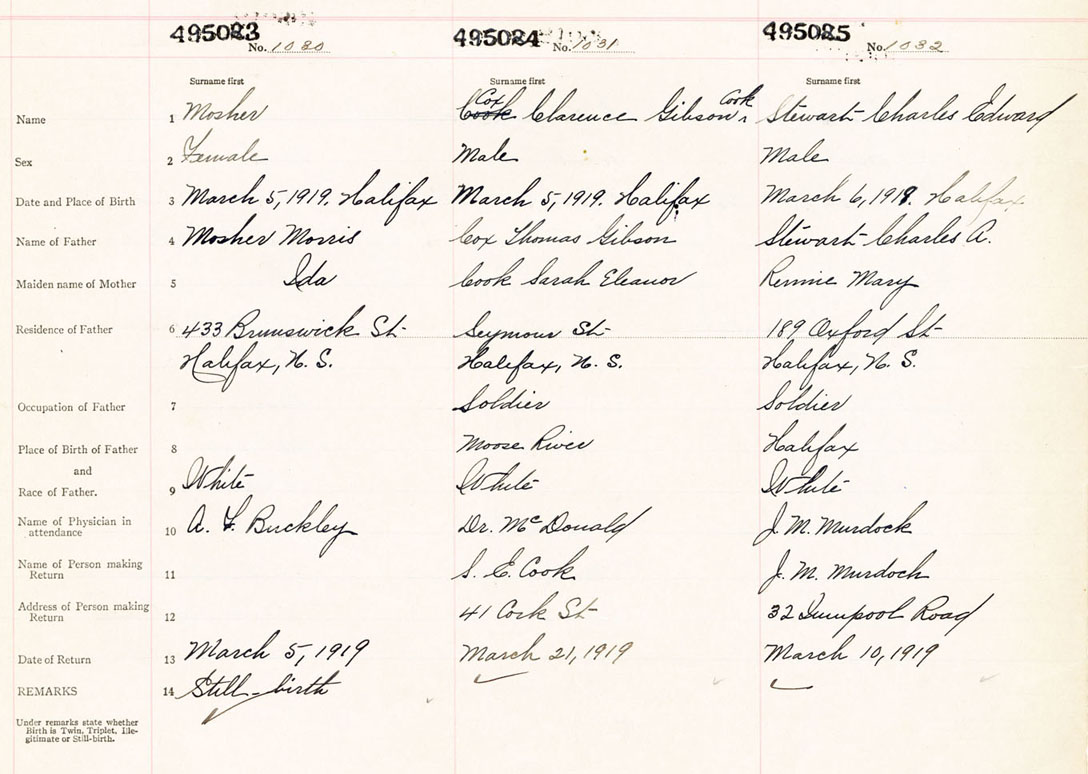 495083 No. 1030 495084 No. 1031 495085 No. 1032
Surname first Surname first Surname first
Name 1 Mosher Cook Cox Clarence Gibson Cook Stewart Charles Edward
Sex 2 Female Male Male
Date and Place of Birth 3 March 5, 1919. Halifax March 5, 1919. Halifax March 6, 1919. Halifax
Name of Father 4 Mosher Morris Cox Thomas Gibson Stewart Charles A.
Maiden name of Mother 5 Ida Cook Sarah Eleanor Rennie Mary
Residence of Father 6 433 Brunswick St Seymour St 189 Oxford St
Halifax, N. S. Halifax, N. S. Halifax, N. S.
Occupation of Father 7 Soldier Soldier
Place of Birth of Father 8 Moose River Halifax
and
Race of Father. 9 White White White
Name of Physician in attendance 10 A. F. Buckley Dr. McDonald J. M. Murdock
Name of Person making Return 11 S. E. Cook J. M. Murdoch
Address of Person making Return 12 41 Cork St 32 Road
Date of Return 13 March 5, 1919 March 21, 1919 March 10, 1919
REMARKS 14 Still-birth
Under remarks state whether
Birth is Twin, Triplet, Ille-
gitimate or Still-birth.